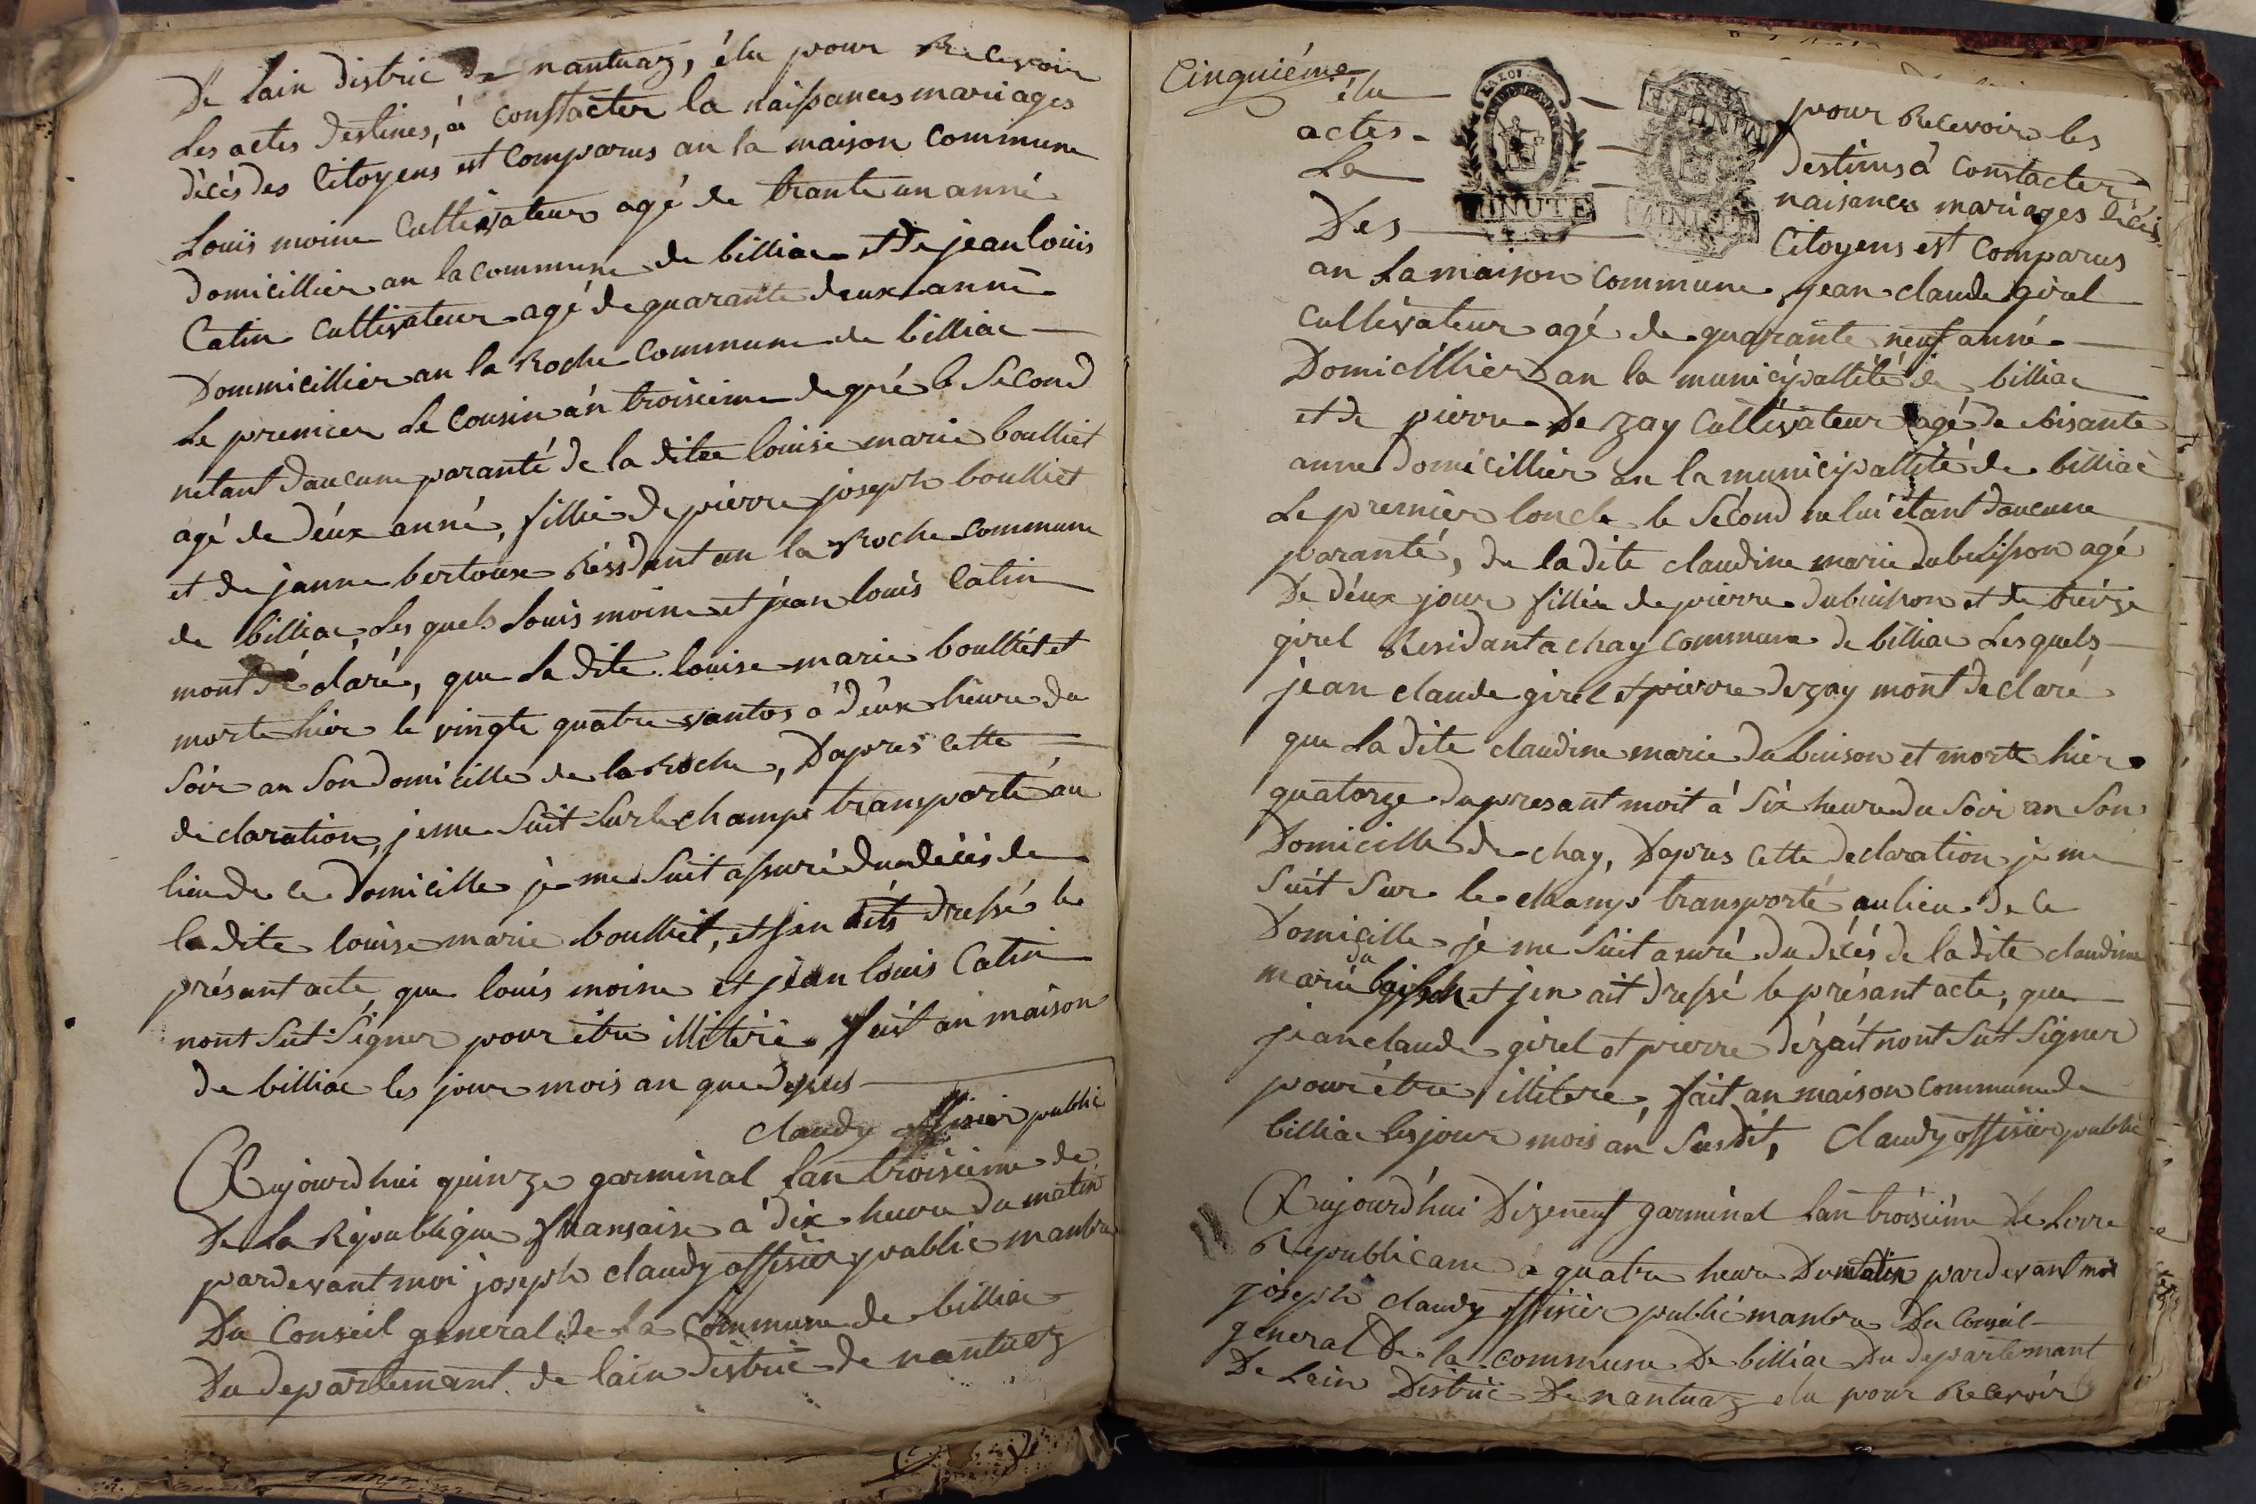 De lain distric de nantuaz, élu pour Recevoir
Les actes destines, à constacter la naissances mariages
décés des Citoyens est Comparus an la maison Commune
Louis moine Cultivateur agé de trante un anné
domicillier an la commune de billiac et de jean louis
Catin Cultivateur agé de quarante deux anné
Dommicillier an la Roche Commune de billiac
Le premier le Cousin an troisieme degré le Second
netant daucune paranté de la ditee louise marie boulliet
agé de déux anné, fillie de pierre joseph boulliet
et de janne bertoux Résidant an la Roche Commune
de billiac, Les quels Louis moine et jean louis Catin
mont dé claré, que la dite louise marie boulliet et
morte hier le vingte quatre vantos à deux heure du
Soir an Son domicille de la Roche, Daprés Cette
declaration, jeme Suit Surle champs transporté au
lieu de Ce Domicille je me Suit assuré du décés de
la dite louise marie boulliet, et jen aits dressé le
présant acte, que louis moine et jean louis Catin
nont Sut Signer pour étre illitére, fait an maison
de billiac les jour mois an que depus
claudy offisier public
Aujourdhui quinze garminal lan troisieme de
De La République fransaise à dix heure du matin
pardevant moi joseph claudy offisier public manbre
Du Conseil general de la Commune de billiac
Du departemant de lain distric de nantuaz
Cinquiéme
élu pour Recevoir les
actes destines à Constacter
La naisances mariages décés
Des Citoyens est Comparus
an La maison Commune jean claude girel
Cultivateur agé de quarante neuf anné
Domicillier an la municipallité de billiac
et de pierre De zay Cultivateur agé de Soisante
anne domicillier an la municipallité de billiac
Le premier loncle le Second ne lui étant daucune
paranté, de la dite claudine marie dubuisson agé
De déux jour fillie de pierre dubuisson et de
girel Residant a chay Commune de billiac Lesquels
jean claude girel et pierre dezay mont declaré
que La dite claudine marie dubuison et morte hier
quatorze du presant moit à Six heure du Soir an Son
Domicille de chay, Daprés Cette declaration je me
Suit Sur le champs transporté au lieu de Ce
Domicille je me Suit a suré du décés de la dite claudine
marie du et jen ait dressé le présant acte, que
jean claude girel et pierre dézait nont Sut Signer
pour étre illitere, fait an maison commune de
billiac les jour mois an Susdit, Claudy offisier public
Aujourdhui Dizeneuf garminal Lan troisiéme De Lerre
Républicane à quatre heure Dumatin pardevant moi
joseph claudy offisier public manbre Du Conseil
general De la commune De billiac Du departemant
De Lain Distric De nantuaz elu pour Recevoir
MINUTE